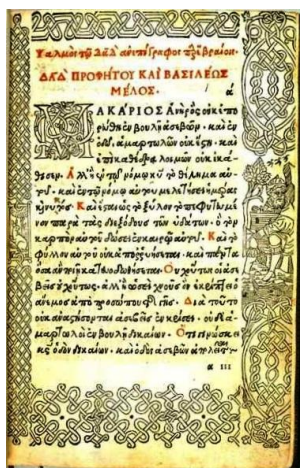 Ψαλμοὶ τῷ Δαδ ἀνεπίγραφοι παρ' ἑβραίοις.
ΔΑΔ ΠΡΟΦΗΤΟΥ ΚΑΙ ΒΑΣΙΛΕΩΣ
ΜΕΛΟΣ. α
ΜΑΚΑΡΙΟΣ ἀνὴρ ὃς οὐκ ἐπο
ρεύθη ἐν βουλῇ ἀσεβῶν. καὶ ἐν
ὁδῷ ἁμαρτωλῶν οὐκ ἔστη. καὶ
ἐπὶ καθέδρᾳ λοιμῶν οὐκ ἐκά
θισεν. Ἀλλ' ἢ ἐν τῷ νόμῳ κυ τὸ θέλημα αυ
τοῦ. καὶ ἐν τῷ νόμῳ αὐτοῦ μελετήσει ἡμέρας
καὶ νυκτός. Καὶ ἔσται ὡς τὸ ξύλον τὸ πεφυτευμέ
νον παρὰ τὰς διεξόδους τῶν ὑδάτων. ὃ τὸν
καρπὸν αὐτοῦ δώσει ἐν καιρῷ αὐτοῦ. Καὶ τὸ
φύλλον αὐτοῦ οὐκ ἀπορρυήσεται. καὶ πάντα
ὅσα ἂν ποιῇ κατευοδωθήσεται. Οὐχ οὕτως οἱ ἀσε
βεῖς οὐχ οὕτως. ἀλλ' ἢ ὡσεὶ χνοῦς ὃν ἐκρίπτει ὁ
ἄνεμος ἀπὸ προσώπου τῆς γῆς. Διὰ τοῦτο
οὐκ ἀναστήσονται ἀσεβεῖς ἐν κρίσει. οὐδὲ ἁ
μαρτωλοὶ ἐν βουλῇ δικαίων. Ὅτι γινώσκει
κς ὁδὸν δικαίων. καὶ ὁδὸς ἀσεβῶν ἀπολεῖται.
α III